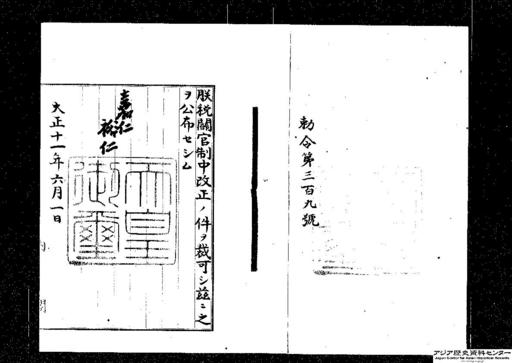 朕税關官制中改正ノ件ヲ裁可シ茲ニ之
ヲ公布セシム
嘉仁
裕仁
天皇御璽
大正十一年六月一日
勅令第三百九號
アジア歴史資料センター
Japan Center for Asian Historical Records